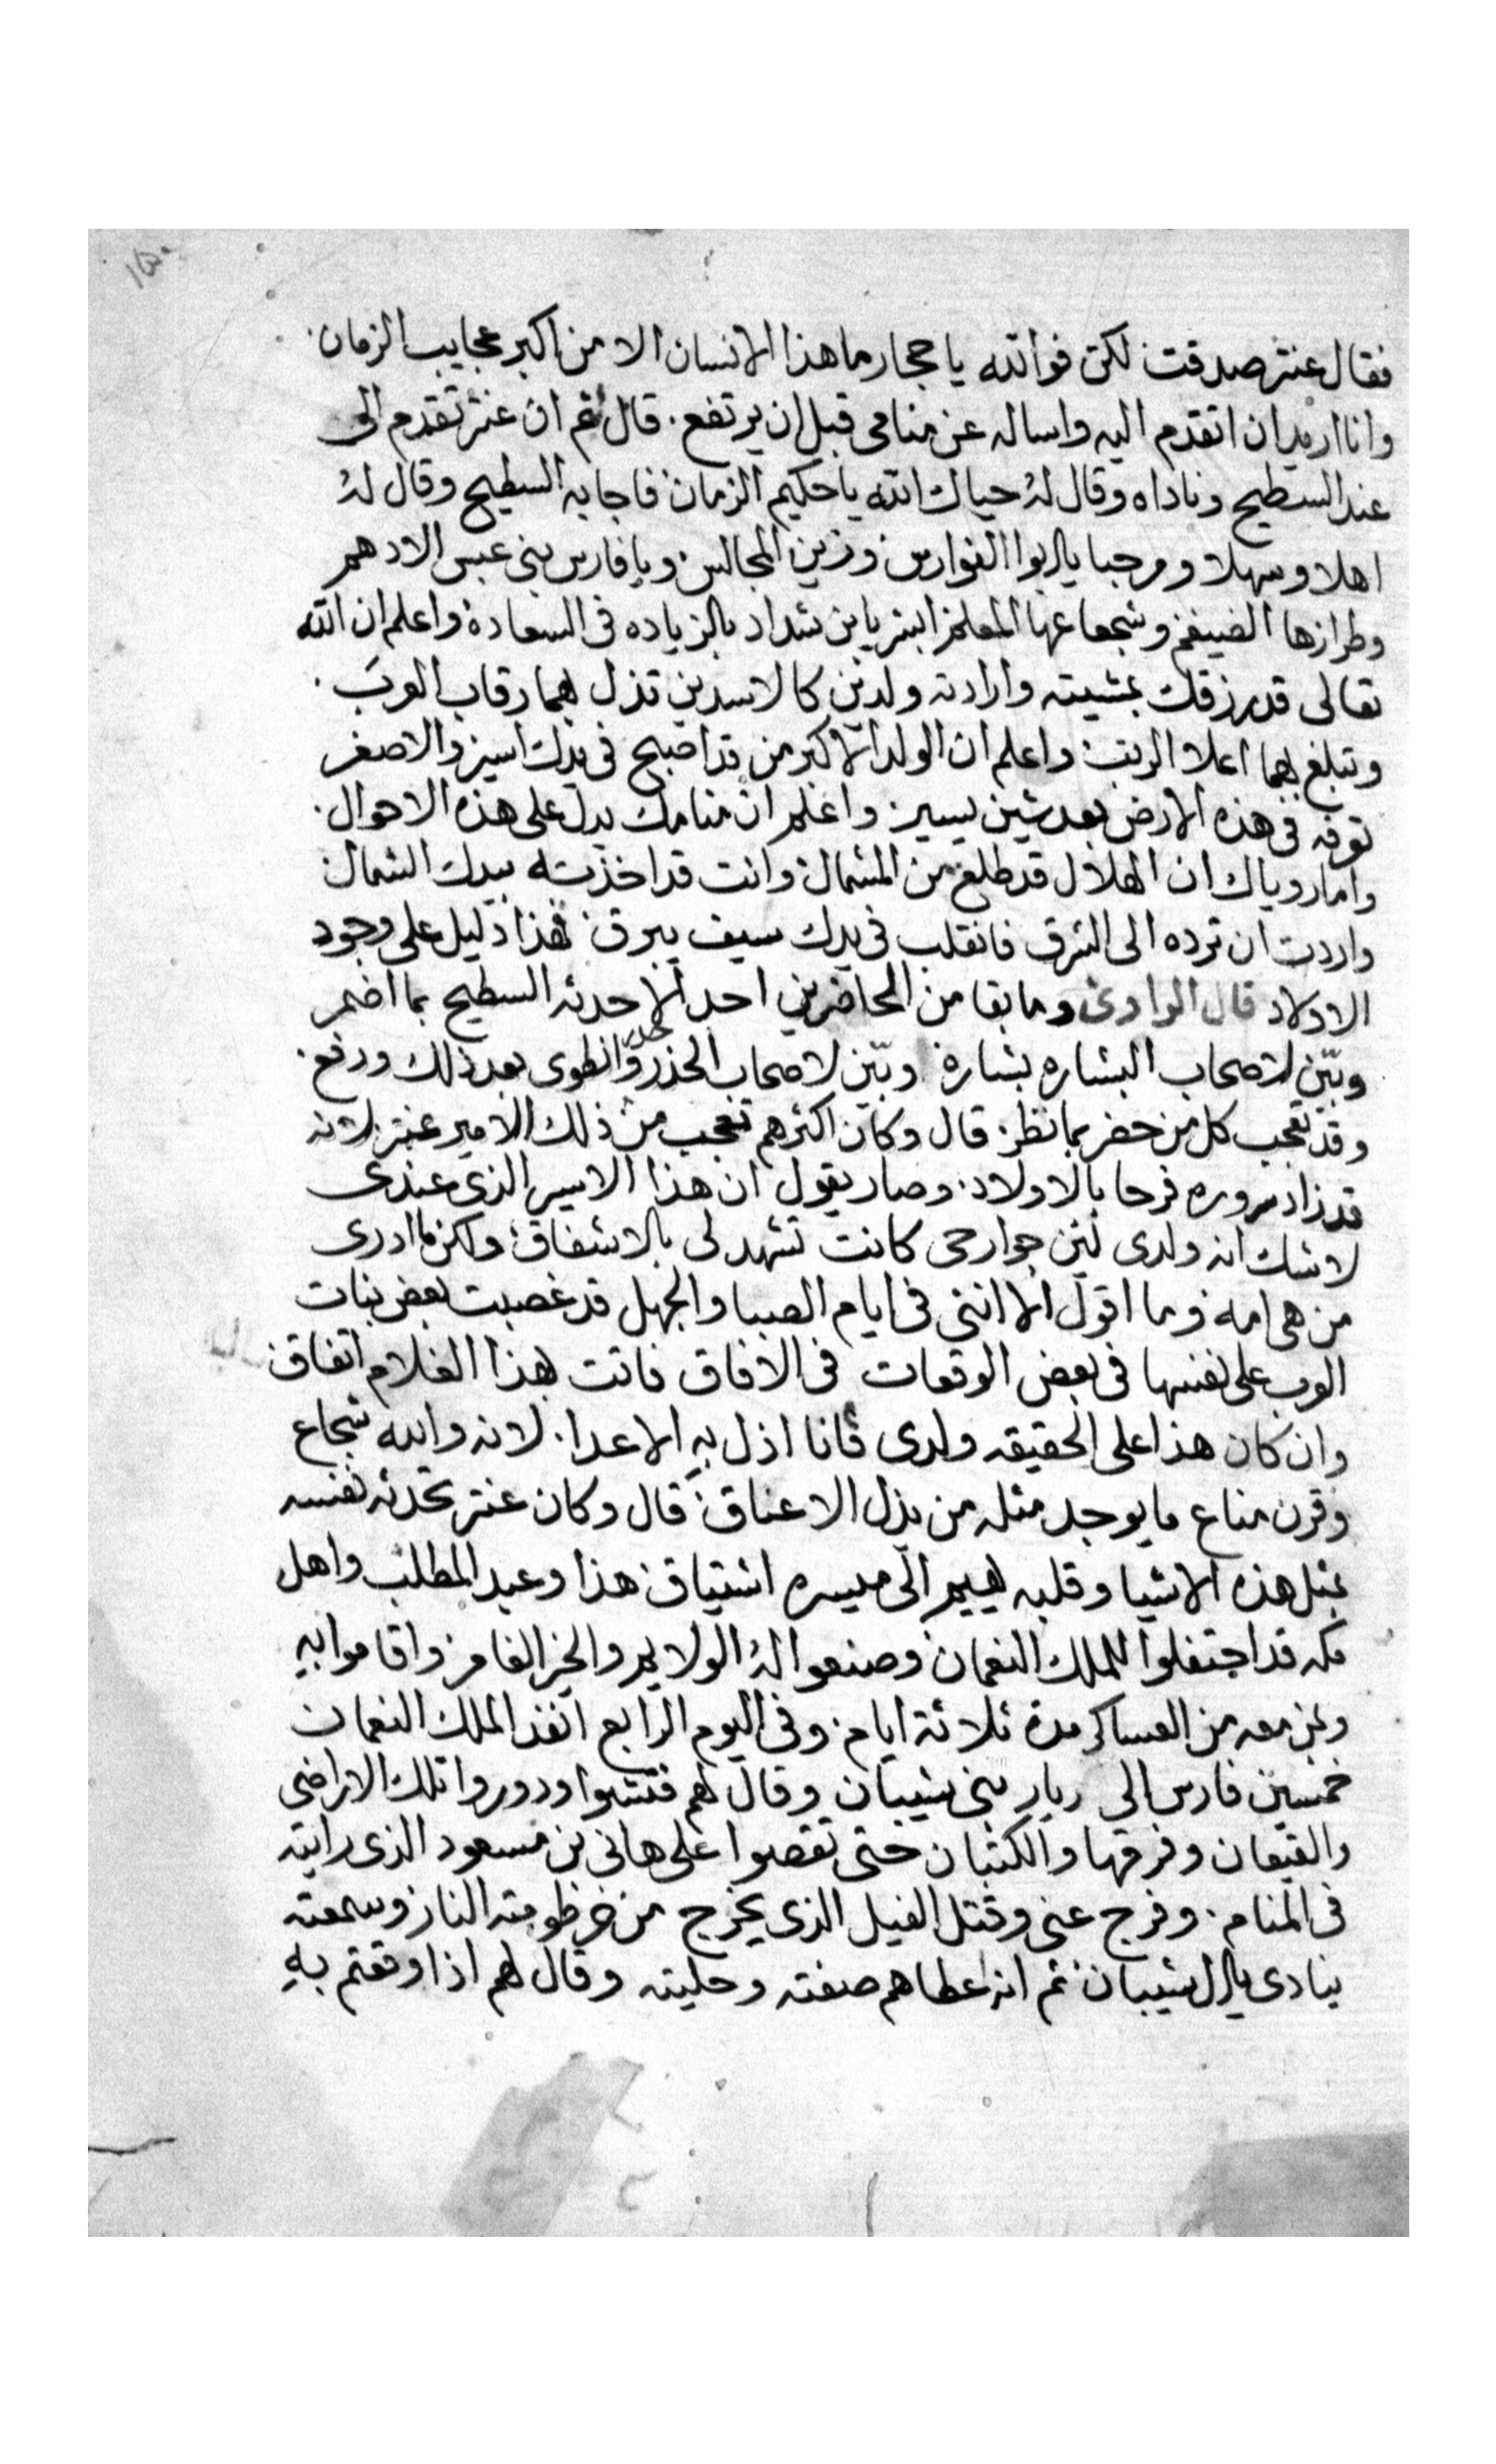 فقال عنتر صدقت لكن فوالله يا حجار ما هذا الانسان الا من اكبر عجايب الزمان
وانا اريد ان اتقدم اليه واساله عن منامى قبل ان يرتفع . قال ثم ان عنتر تقدم الى
عند السطيح وناداه وقال له حياك الله يا حكيم الزمان فاجابه السطيح وقال له
اهلا وسهلا ومرحبا يا ابوا الفوارس وزين المجالس ويا فارس بنى عبس الادهم
وطرازها الضيغم وشجاعها المعلم ابشر يا بن شداد بالزياده فى السعادة واعلم ان الله
تعالى قد رزقك بمشيته وارادته ولدين كالاسدين تذل بهما رقاب العرب .
وتبلغ بهما اعلا الرتب واعلم ان الولد الاكبر من قد اصبح فى يدك اسير والاصغر
توفه فى هذه الارض بعد شين يسير واعلم ان منامك يدل على هذه الاحوال .
واما روياك ان الهلال قد طلع من الشمال وانت قد اخذته بيدك الشمال
واردت ان ترده الى الشرق فانقلب فى يدك سيف يبرق فهذا دليل على وجود
الاولاد قال الراوى وما بقا من الحاضرين احد الا حدثه السطيح بما اضمر
وبين لاصحاب البشاره بشارة وبين لاصحاب الحذر وانطوى بعد ذلك ورفع .
وقد تعجب كل من حضر بما نظر قال وكان اكثرهم تعجب من ذلك الامير عنتر لانه
قد زاد سروره فرحا بالاولاد وصار يقول ان هذا الاسير الذى عندى
لا شك انه ولدى لين جوارحى كانت تشهد لى بالاشفاق ولكن ما ادرى
من هى امه وما اقول الا اننى فى ايام الصبا والجهل قد غصبت بعض بنات
العرب على نفسها فى بعض الوقعات فى الافاق فاتت بهذا الغلام اتفاق
وان كان هذا على الحقيقه ولدى فانا اذل به الاعدا . لانه والله شجاع
وقرن مناع ما يوجد مثله من يذل الاعناق قال وكان عنتر تحدثه نفسه
بمثل هذه الاشيا وقلبه يهيم الى ميسره اشتياق هذا وعبد المطلب واهل
مكه قد اجتفلوا للملك النعمان وصنعوا له الولايم والخير الغامر واقاموا به
وبمن معه من العساكر مدة ثلاثة ايام وفى اليوم الرابع انفذ الملك النعمان
خمسين فارس الى ديار بنى شيبان وقال لهم فتشوا ودوروا تلك الاراضى
والقيعان وفرقها والكثبان حتى تقصوا على هانى بن مسعود الذى رايته
فى المنام . وفرج عنى وقتل الفيل الذى يخرج من خرظومته النار وسمعته
ينادى يال شيبان ثم انه اعطاهم صفته وحليته وقال لهم اذا وقعتم به